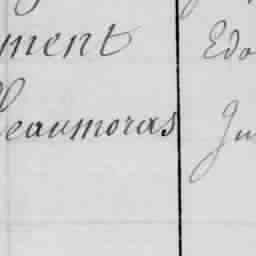 ment Edo
Beaumoras Ju